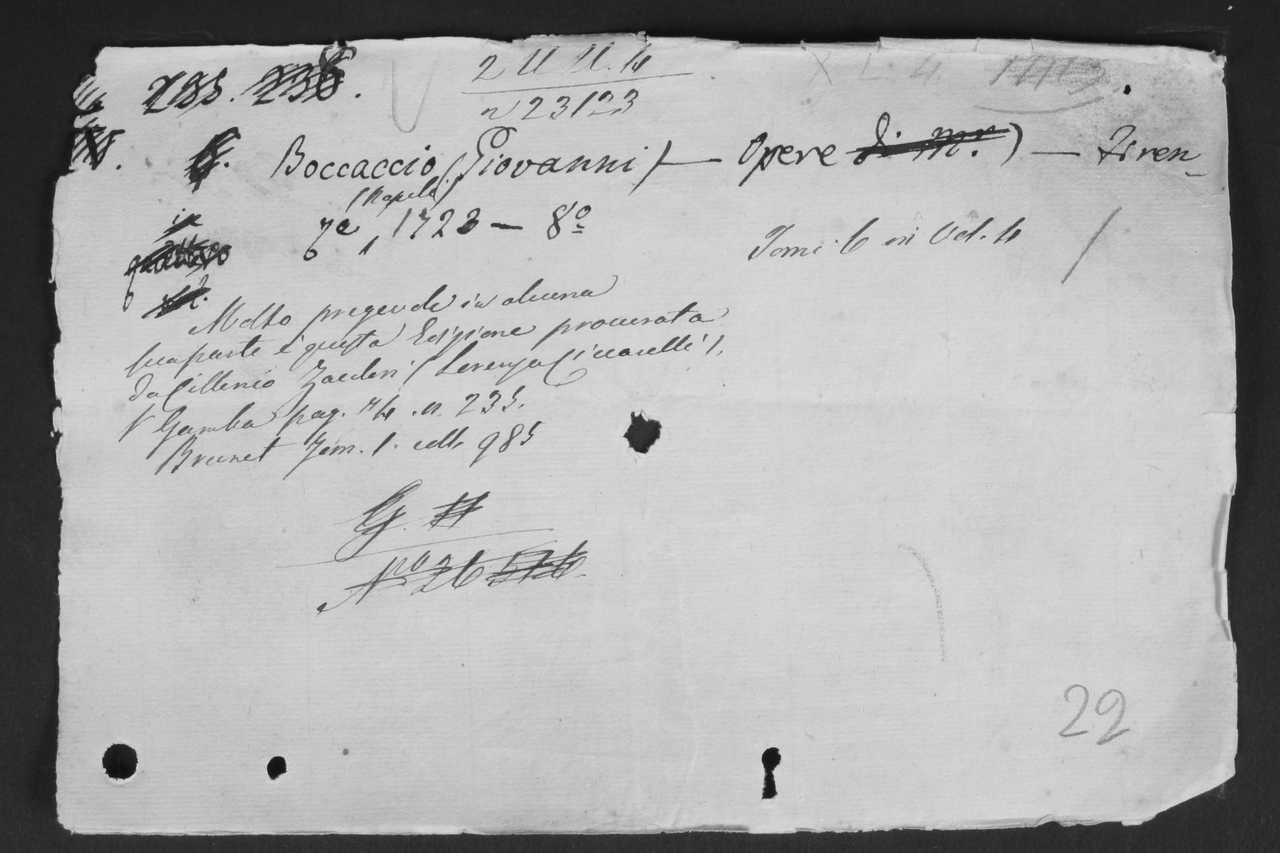 2 U U. 4
n 23123
X L. 4.
285. 238.
G. Boccaccio (Giovanni) — Opere di mr) — Firen
ze (Napoli) 1723 — 8º
in
quattro
Tomi 6 in Vol. 4 /
Molto pregevole in alcuna
sua parte è questa Edizione procurata
da Cillenio Zacclori (Lorenzo Ciccarelli).
V Gamba pag. 74. n. 235.
Brunet Tom. 1. coll. 985
G. #
Nro 26
22